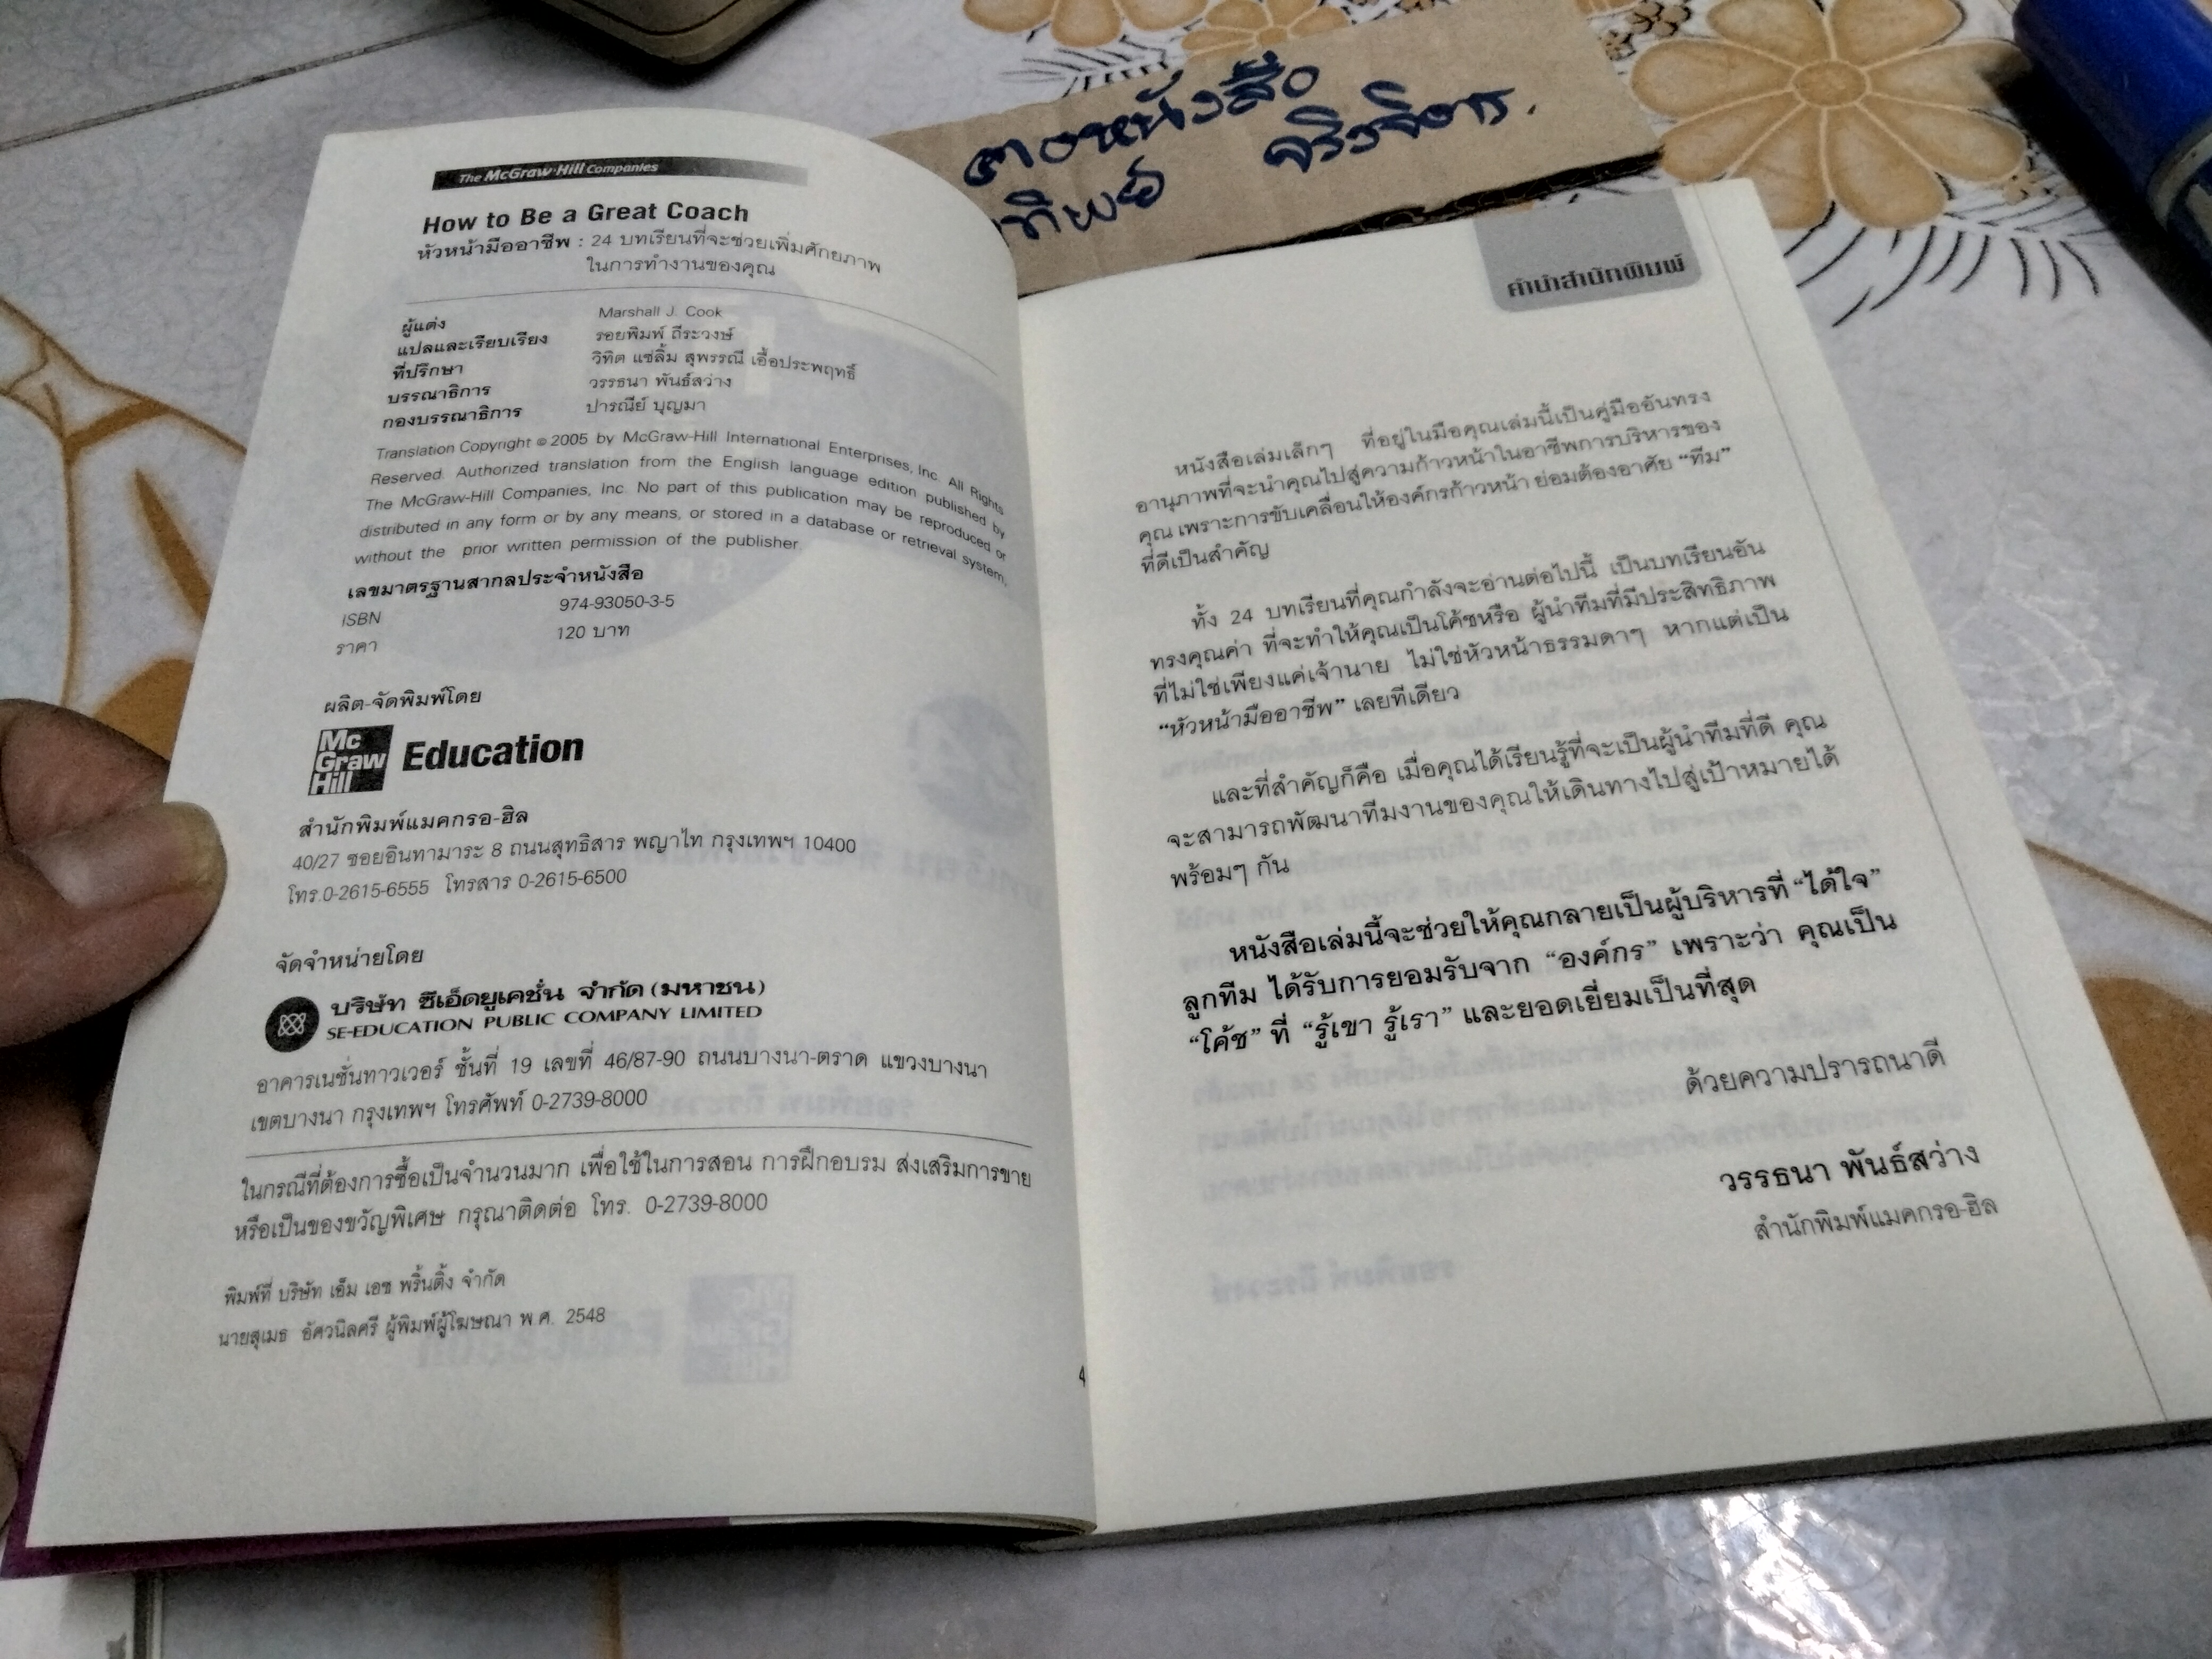 ตองหนังสือ
ทิพย์ จริงจิตร.
The McGraw-Hill Companies
How to Be a Great Coach
หัวหน้ามืออาชีพ : 24 บทเรียนที่จะช่วยเพิ่มศักยภาพ
ในการทำงานของคุณ
ผู้แต่ง Marshall J. Cook
แปลและเรียบเรียง รอยพิมพ์ ถีระวงษ์
ที่ปรึกษา วิทิต แซ่ลิ้ม สุพรรณี เอื้อประพฤทธิ์
บรรณาธิการ วรรธนา พันธ์สว่าง
กองบรรณาธิการ ปารณีย์ บุญมา
Translation Copyright © 2005 by McGraw-Hill International Enterprises, Inc. All Rights
Reserved. Authorized translation from the English language edition published by
The McGraw-Hill Companies, Inc. No part of this publication may be reproduced or
distributed in any form or by any means, or stored in a database or retrieval system,
without the prior written permission of the publisher.
เลขมาตรฐานสากลประจำหนังสือ
ISBN 974-93050-3-5
ราคา 120 บาท
ผลิต-จัดพิมพ์โดย
Mc
Graw
Hill
Education
สำนักพิมพ์แมคกรอ-ฮิล
40/27 ซอยอินทามาระ 8 ถนนสุทธิสาร พญาไท กรุงเทพฯ 10400
โทร.0-2615-6555 โทรสาร 0-2615-6500
จัดจำหน่ายโดย
บริษัท ซีเอ็ดยูเคชั่น จำกัด (มหาชน)
SE-EDUCATION PUBLIC COMPANY LIMITED
อาคารเนชั่นทาวเวอร์ ชั้นที่ 19 เลขที่ 46/87-90 ถนนบางนา-ตราด แขวงบางนา
เขตบางนา กรุงเทพฯ โทรศัพท์ 0-2739-8000
ในกรณีที่ต้องการซื้อเป็นจำนวนมาก เพื่อใช้ในการสอน การฝึกอบรม ส่งเสริมการขาย
หรือเป็นของขวัญพิเศษ กรุณาติดต่อ โทร. 0-2739-8000
พิมพ์ที่ บริษัท เอ็ม เอช พริ้นติ้ง จำกัด
นายสุเมธ อัศวนิลศรี ผู้พิมพ์ผู้โฆษณา พ.ศ. 2548
4
คำนำสำนักพิมพ์
หนังสือเล่มเล็กๆ ที่อยู่ในมือคุณเล่มนี้เป็นคู่มืออันทรง
อานุภาพที่จะนำคุณไปสู่ความก้าวหน้าในอาชีพการบริหารของ
คุณ เพราะการขับเคลื่อนให้องค์กรก้าวหน้า ย่อมต้องอาศัย “ทีม”
ที่ดีเป็นสำคัญ
ทั้ง 24 บทเรียนที่คุณกำลังจะอ่านต่อไปนี้ เป็นบทเรียนอัน
ทรงคุณค่า ที่จะทำให้คุณเป็นโค้ชหรือ ผู้นำทีมที่มีประสิทธิภาพ
ที่ไม่ใช่เพียงแค่เจ้านาย ไม่ใช่หัวหน้าธรรมดาๆ หากแต่เป็น
“หัวหน้ามืออาชีพ” เลยทีเดียว
และที่สำคัญก็คือ เมื่อคุณได้เรียนรู้ที่จะเป็นผู้นำทีมที่ดี คุณ
จะสามารถพัฒนาทีมงานของคุณให้เดินทางไปสู่เป้าหมายได้
พร้อมๆ กัน
หนังสือเล่มนี้จะช่วยให้คุณกลายเป็นผู้บริหารที่ “ได้ใจ”
ลูกทีม ได้รับการยอมรับจาก “องค์กร” เพราะว่า คุณเป็น
“โค้ช” ที่ “รู้เขา รู้เรา” และยอดเยี่ยมเป็นที่สุด
ด้วยความปรารถนาดี
วรรธนา พันธ์สว่าง
สำนักพิมพ์แมคกรอ-ฮิล